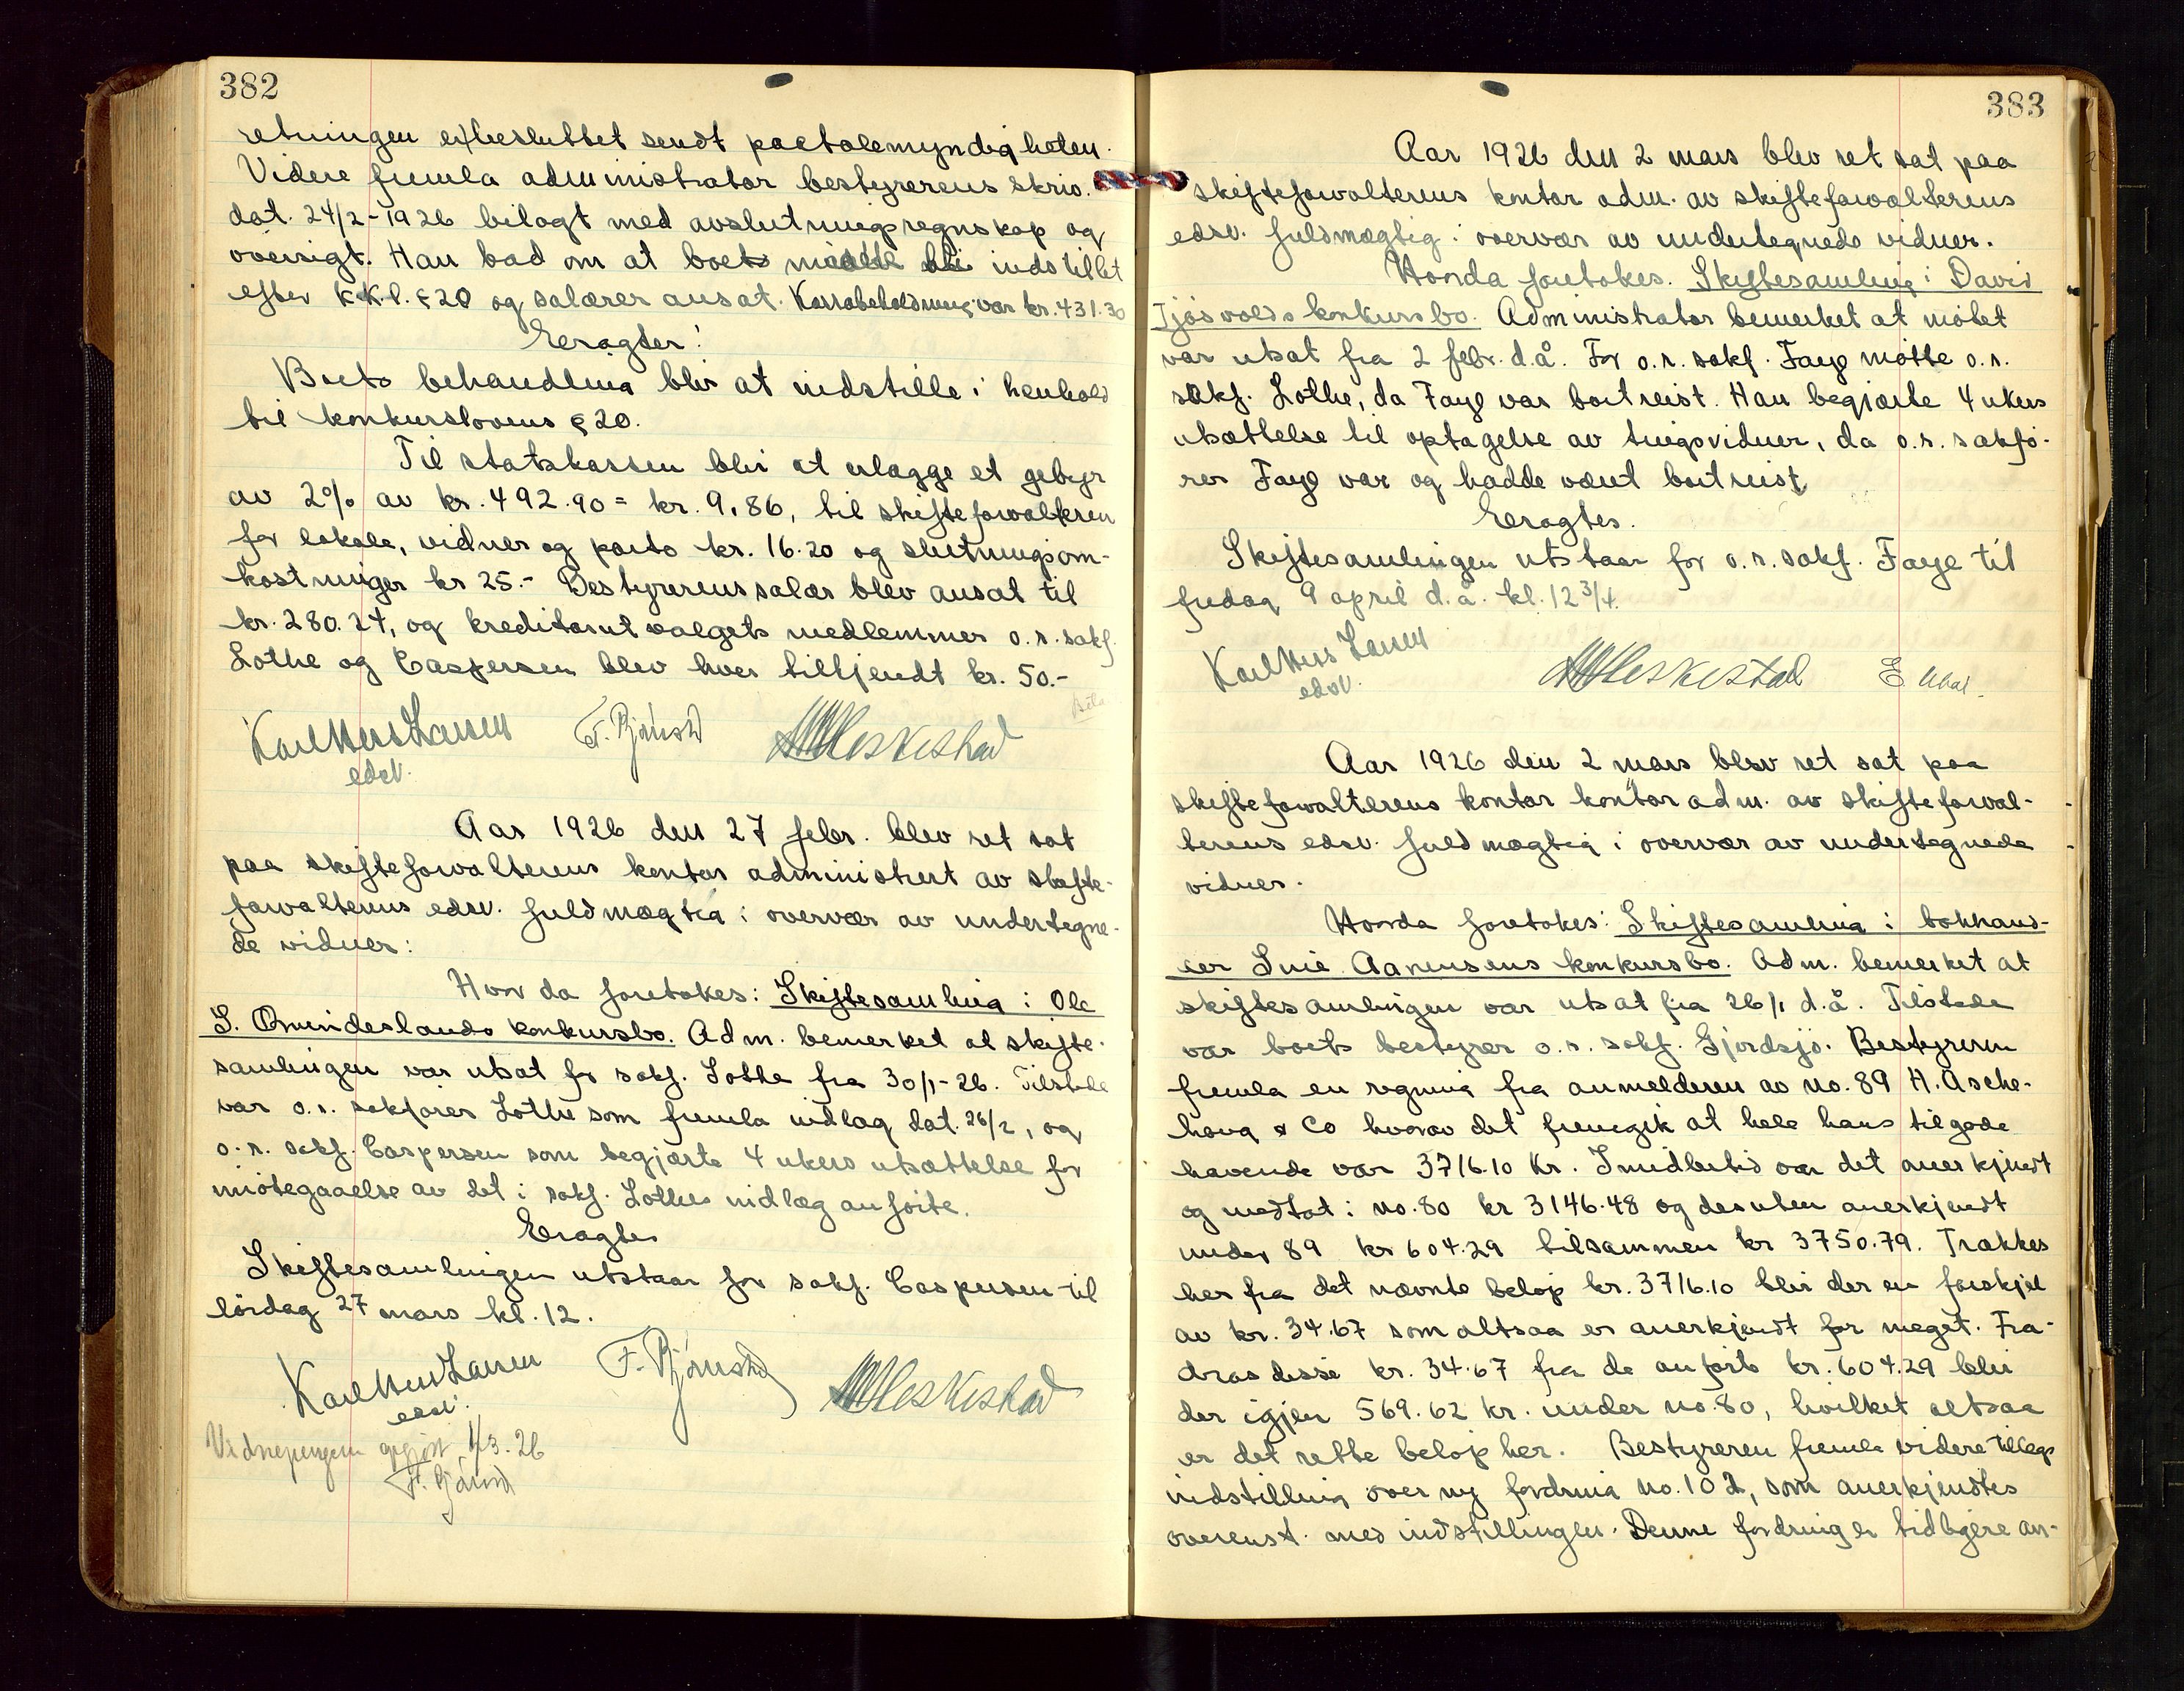 382
retningen er besluttet sendt paatalemyndigheten.
Videre fremla administrator bestyrerens skriv.
dat. 24/2-1926 bilagt med avslutningsregnskap og
oversigt. Han bad om at boet maatte bli indstillet
efter K.K.l. § 20 og salærer ansat. Kassabeholdning var kr. 431.30
Eragtes:
Boets behandling blir at indstille i henhold
til konkurslovens § 20.
Til statskassen blir at erlægge et gebyr
av 2% av kr. 492.90 = kr. 9,86, til skifteforvalteren
for lokale, vidner og porto kr. 16.20 og slutningsom-
kostninger kr 25.- Bestyrerens salær blev ansat til
kr. 280.24, og kreditorutvalgets medlemmer o.r.sakf.
Lothe og Caspersen blev hver tilkjendt kr. 50.-
Karl Aars Larsen
edsv.
Aar 1926 den 27 febr. blev ret sat
paa skifteforvalterens kontor administrert av skifte-
forvalterens edsv. fuldmægtig i overvær av undertegne-
de vidner:
Hvor da foretokes: Skiftesamling i Ole
S. Omundeslands konkursbo. Adm. bemerket at skifte-
samlingen var utsat for sakf. Lothe fra 30/1-26. Tilstede
var o.r. sakfører Lothe som fremla indlæg dat. 26/2, og
o.r. sakf. Caspersen som begjærte 4 ukers utsættelse for
imøtegaaelse av det i sakf. Lothes indlæg anførte.
Eragtes
Skiftesamlingen utstaar for sakf. Caspersen til
lørdag 27 mars kl. 12.
Karl Aars Larsen
edsv.
Vidnepengene opgjort 1/3.26
383
Aar 1926 den 2 mars blev ret sat paa
skifteforvalterens kontor adm. av skifteforvalterens
edsv. fuldmægtig i overvær av undertegnede vidner.
Hvorda foretokes. Skiftesamling i David
Tjøsvolds konkursbo. Administrator bemerket at møtet
var utsat fra 2 febr. d.å. For o.r. sakf. Faye møtte o.r.
sakf. Lothe, da Faye var bortreist. Han begjærte 4 ukers
utsættelse til optagelse av tingsvidner, da o.r. sakfø-
rer Faye var og hadde været bortreist.
Eragtes.
Skiftesamlingen utstaar for o.r. sakf. Faye til
fredag 9 april d.å. kl. 12 3/4.
Karl Aars Larsen
edsv.
Aar 1926 den 2 mars blev ret sat paa
skifteforvalterens kontor kontor adm. av skifteforval-
terens edsv. fuldmægtig i overvær av undertegnede
vidner.
Hvorda foretokes: Skiftesamling i bokhand-
ler Sme Aanensens konkursbo. Adm. bemerket at
skiftesamlingen var utsat fra 26/1 d.å. Tilstede
var boets bestyrer o.r. sakf. Gjordsjø. Bestyreren
fremla en regning fra anmelderen av no. 89 H. Asche-
houg & Co hvorav det fremgik at hele hans tilgode
havende var 3716.10 Kr. Imidlertid var det anerkjendt
og medtat i no. 80 kr 3146.48 og desuten anerkjendt
under 89 kr 604.29 tilsammen kr 3750.79. Trækkes
her fra det nævnte beløp kr. 3716.10 blir der en forskjel
av kr. 34.67 som altsaa er anerkjendt for meget. Fra-
dras disse kr. 34.67 fra de anførte kr. 604.29 blir
der igjen 569.62 kr. under no. 80, hvilket altsaa
er det rette beløp her. Bestyreren fremla videre tillægs
indstilling over ny fordring no. 102, som anerkjendtes
overenst. med indstillingen. Denne fordring er tidligere an-